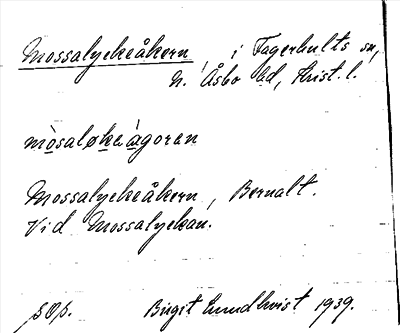 Mossalyckeåkern i Fagerhults sn,
N. Åsbo hd, Krist. l.
mòsaløkeàgoran
Mossalyckeåkern, Bernalt.
Vid Mossalyckan.
Birgit Lundkvist 1939.